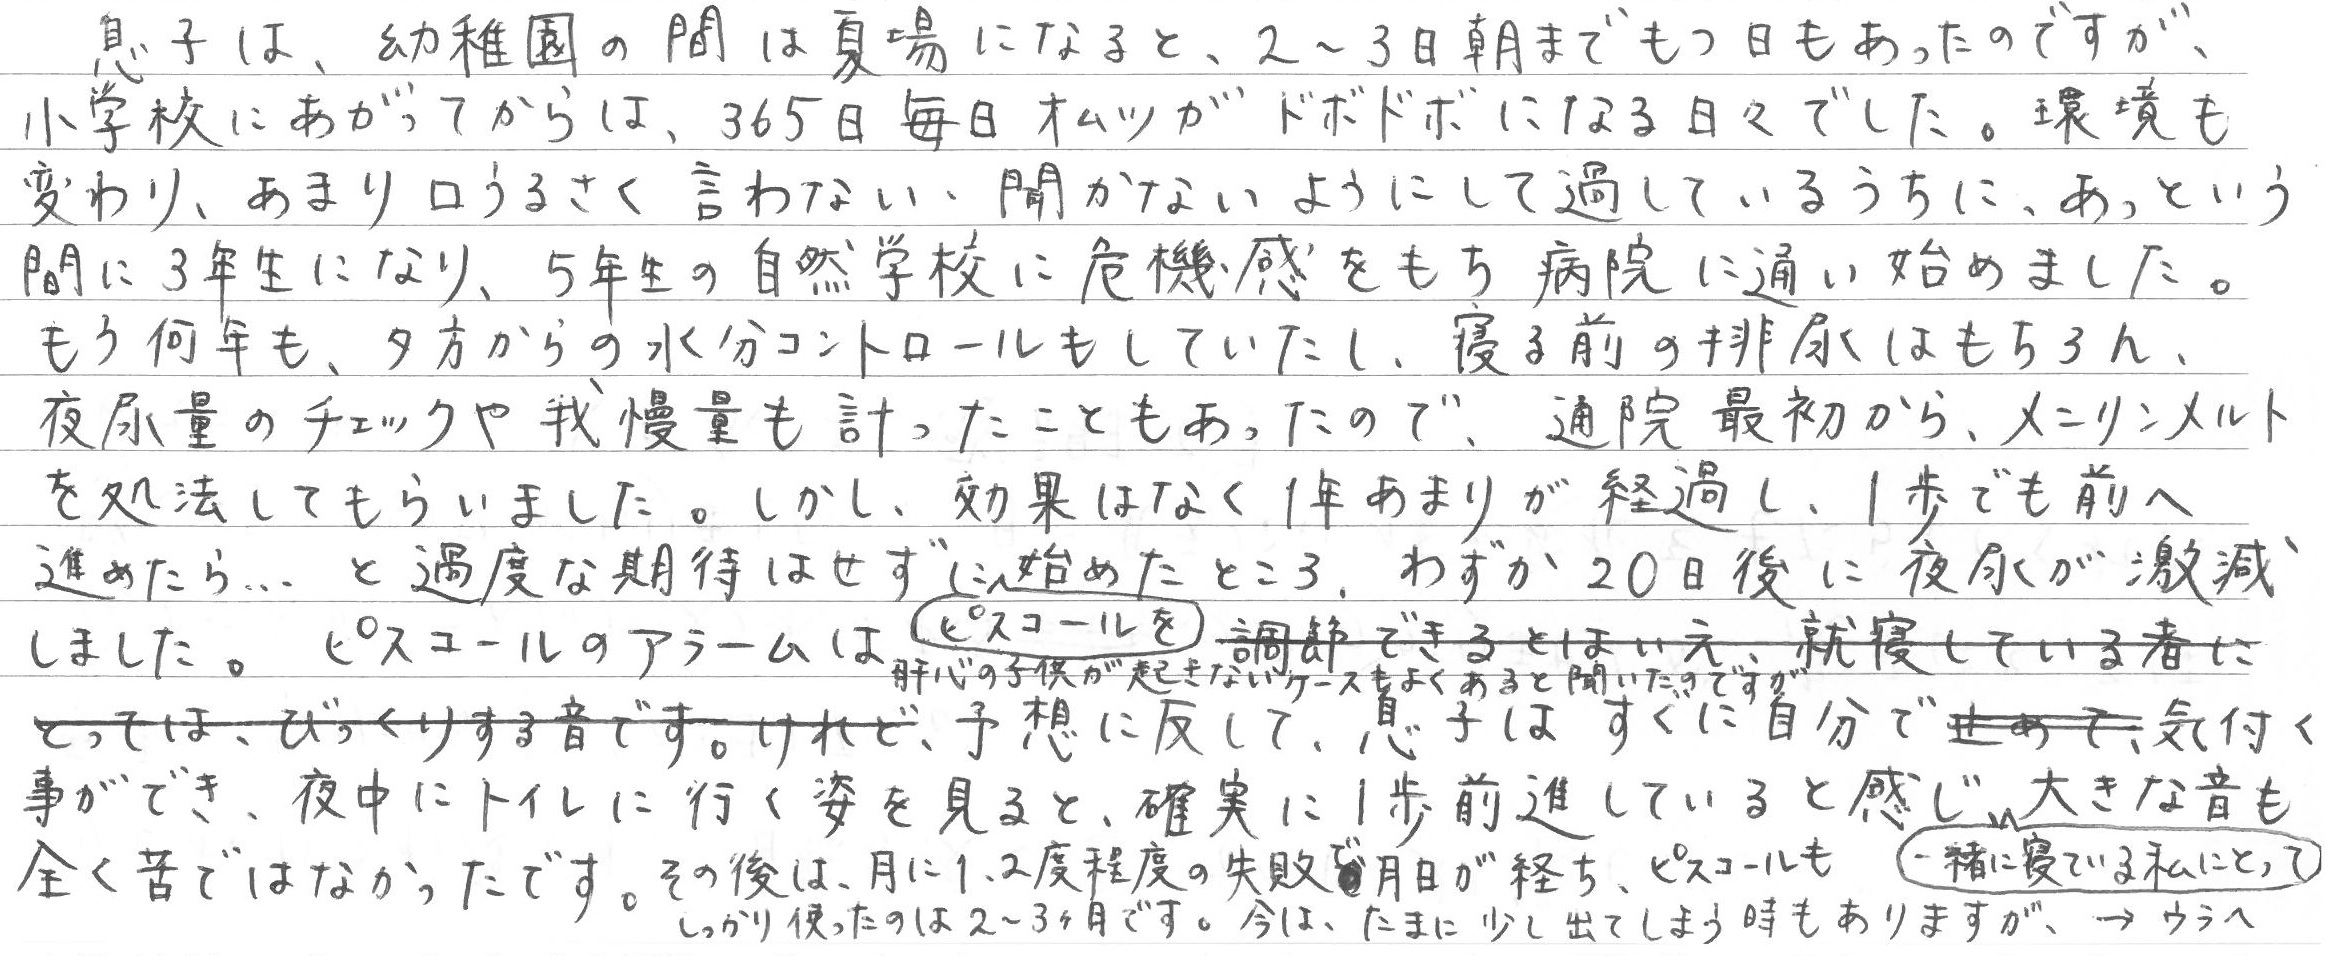 息子は、幼稚園の間は夏場になると、2~3日朝までもつ日もあったのですが、
小学校にあがってからは、365日毎日オムツがドボドボになる日々でした。環境も
変わり、あまり口うるさく言わない、聞かないようにして過しているうちに、あっという
間に3年生になり、5年生の自然学校に危機感をもち病院に通い始めました。
もう何年も、夕方からの水分コントロールもしていたし、寝る前の排尿はもちろん、
夜尿量のチェックや我慢量も計ったこともあったので、通院最初から、メニリンメルト
を処法してもらいました。しかし、効果はなく1年あまりが経過し、1歩でも前へ
進めたら… と過度な期待はせずに始めたところ、わずか20日後に夜尿が激減
ピスコールを
しました。 ピスコールのアラームは 調節できるとはいえ、就寝している者に
肝心の子供が起きないケースもよくあると聞いたのですが
とっては、びっくりする音です。けれど、予想に反して、息子はすぐに自分で せめて、気付く
事ができ、夜中にトイレに行く姿を見ると、確実に1歩前進していると感じ 大きな音も
一緒に寝ている私にとって
全く苦ではなかったです。その後は、月に1、2度程度の失敗で月日が経ち、ピスコールも
しっかり使ったのは2~3ヶ月です。今は、たまに少し出てしまう時もありますが、→ウラへ